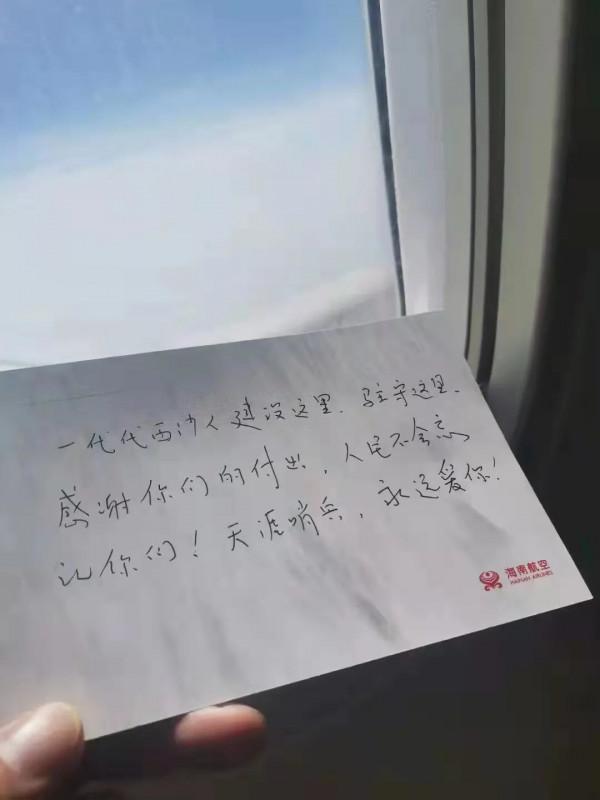 一代代西沙人建设这里、驻守这里、
感谢你们的付出，人民不会忘
记你们！天涯哨兵，永远爱你！
海南航空
HAINAN AIRLINES